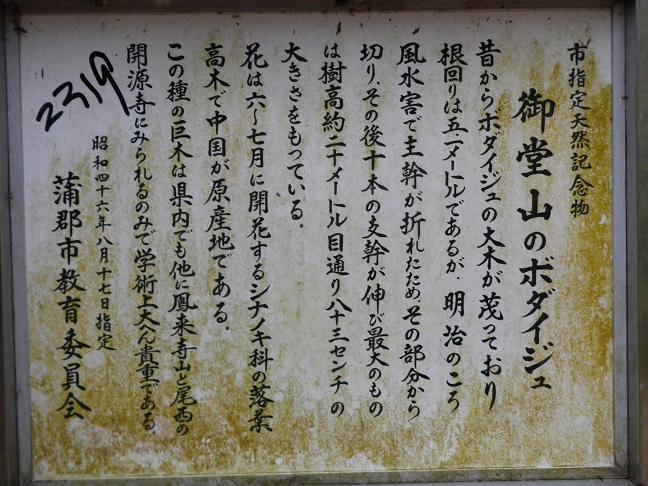 市指定天然記念物
御堂山のボダイジュ
昔からボダイジュの大木が茂っており
根回りは五・一メートルであるが、明治のころ
風水害で主幹が折れたため、その部分から
切り、その後十本の支幹が伸び最大のもの
は樹高約二十メートル目通り八十三センチの
大きさをもっている。
花は六～七月に開花するシナノキ科の落葉
高木で中国が原産地である。
この種の巨木は県内でも他に鳳来寺山と尾西の
開源寺にみられるのみで学術上大へん貴重である。
昭和四十六年八月十七日指定
蒲郡市教育委員会
2319